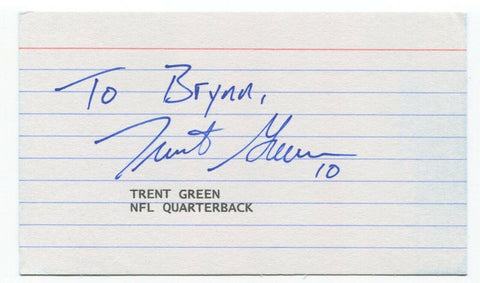 To Brynn,
Trent Green
10
TRENT GREEN
NFL QUARTERBACK